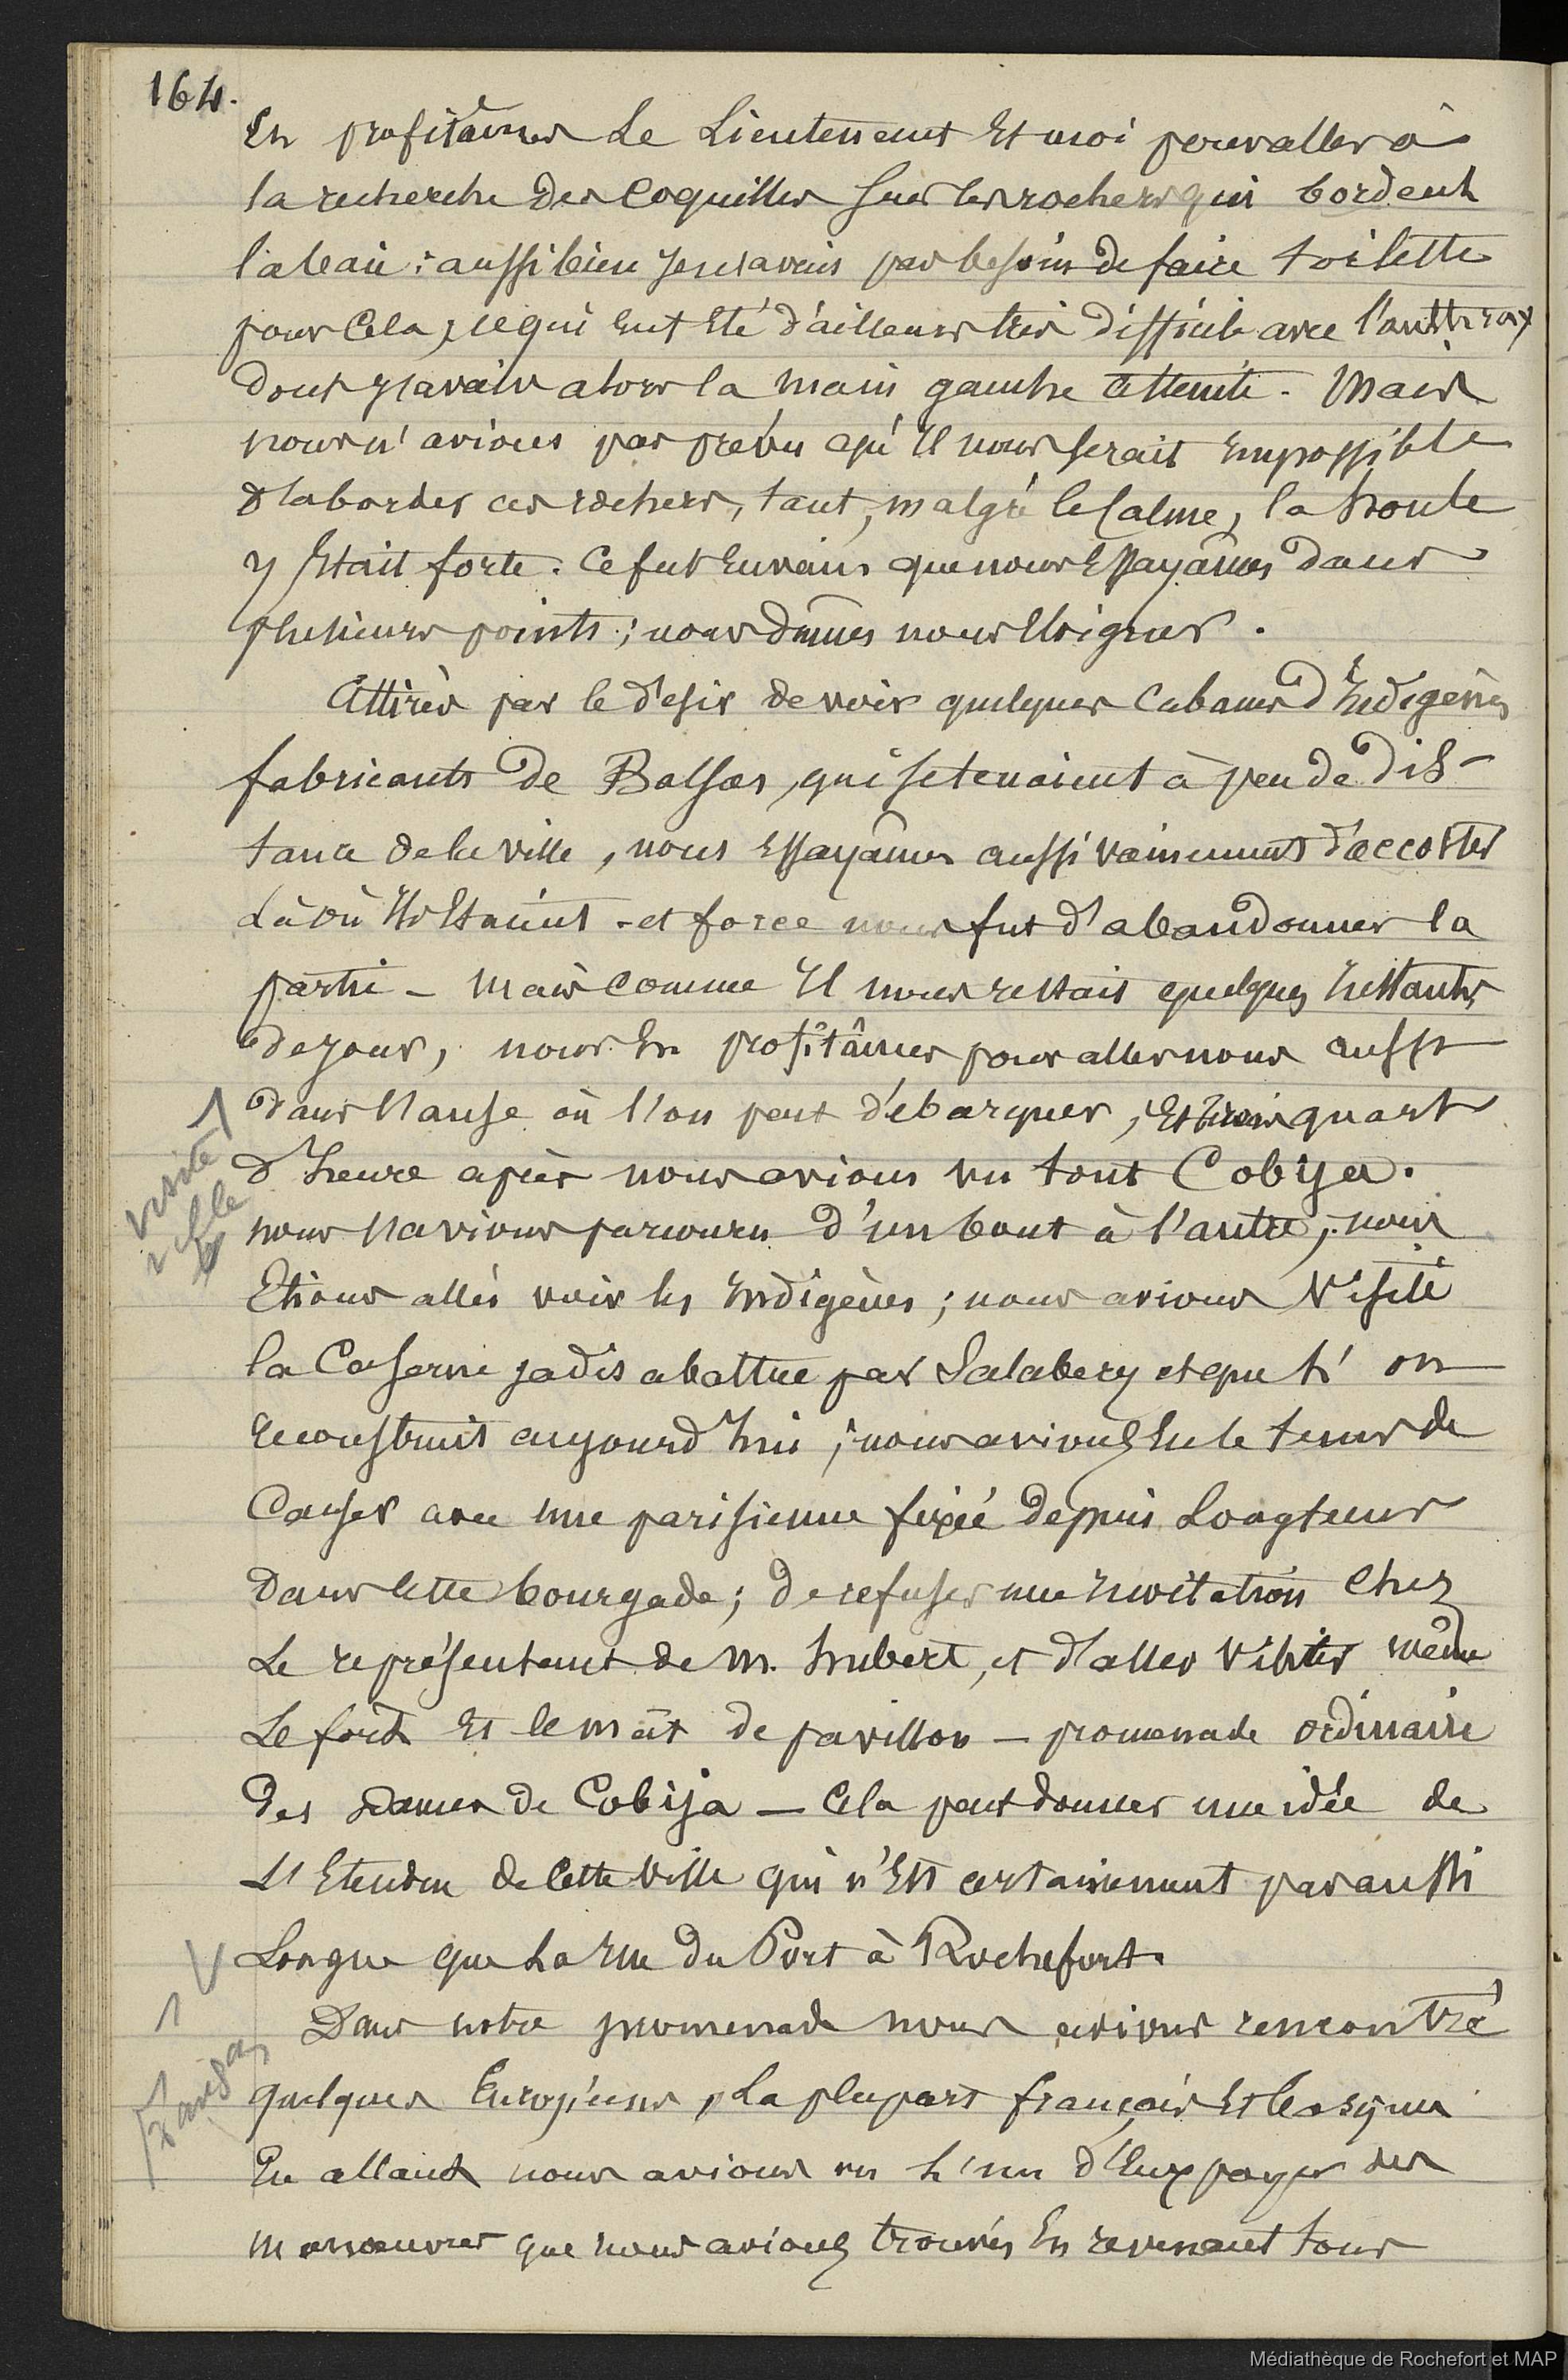 164.
En profitâmes Le Lieutenant Et moi pour aller à
la recherche des Coquilles sur les rochers qui bordent
la baie : aussi bien je n'avais pas besoin de faire toilette
pour Cela, ce qui eut été d'ailleurs très difficile avec l'anthrax
dont j'avais alors la main gauche atteinte. Mais
nous n'avions pas prévu qu'Il nous serait Impossible
d'aborder ces rochers, tant, malgré le Calme, la houle
y Etait forte. Ce fut En vain que nous Essayâmes dans
plusieurs points ; nous dûmes nous Eloigner.
Attirés par le désir de voir quelques Cabanes d'Indigènes
fabricants de Balsas, qui se tenaient à peu de dis-
tance de la ville, nous Essayâmes aussi vainement d'accoster
Là où Ils Etaient - et force nous fut d'abandonner la
partie - Mais comme Il nous restait quelques Instants
de jour, nous En profitâmes pour aller nous aussi
dans l'anse où l'on peut débarquer, Et trois quart
d'heure après nous avions vu tout Cobija.
Visite
ville
nous l'avions parcouru d'un bout à l'autre, nous
Etions allés voir les Indigènes ; nous avions Visité
la Caserne jadis abattue par Salabery et que l'on
reconstruit aujourd'hui ; nous avions Eu le tems de
Causer avec une parisienne fixée depuis Longtems
dans Cette bourgade ; de refuser une Invitation Chez
Le représentant de M. Hubert, et d'aller Visiter même
Le fort Et le mât de pavillon — promenade ordinaire
des Dames de Cobija — Cela peut donner une idée de
L'Etendue de Cette Ville qui n'Est certainement pas aussi
Longue que La rue du Port à Rochefort.
Dans notre promenade nous avions rencontré
quelques Européens, La plupart français Et basques
En allant nous avions vu L'un d'Eux payer des
manoeuvres que nous avions trouvés En revenant tous
Médiathèque de Rochefort et MAP